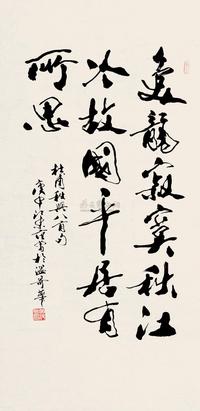 魚龍寂寞秋江
冷故國平居有
所思
杜甫秋興八首句
庚申於溫哥華